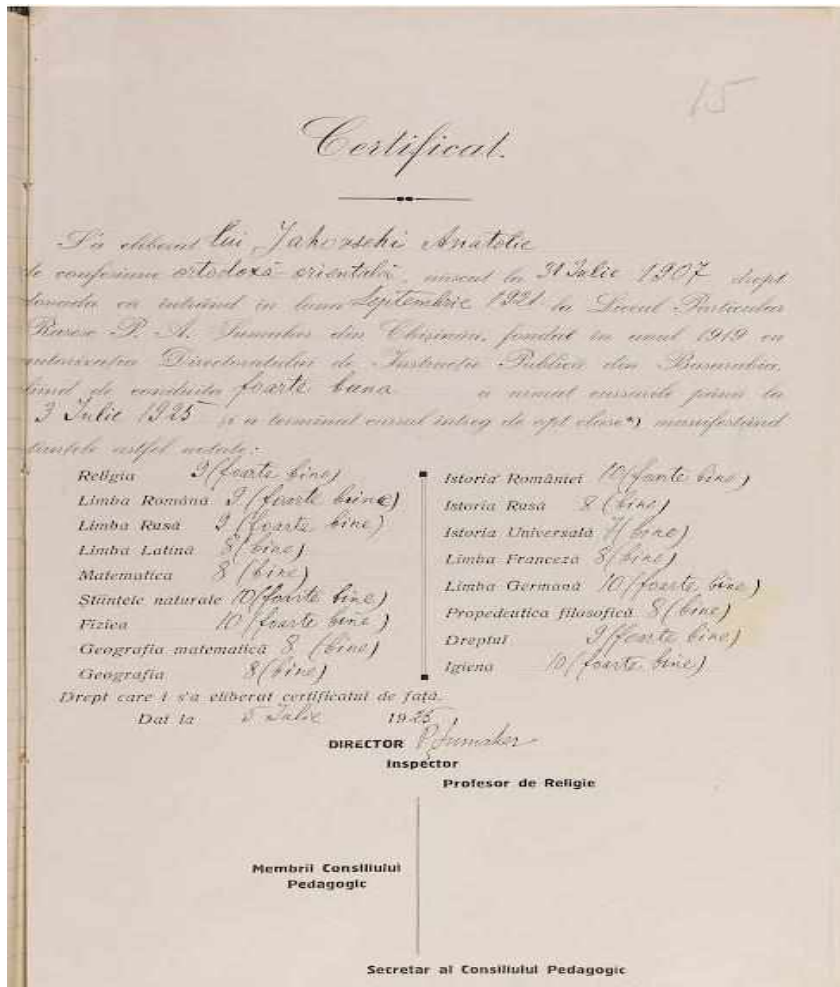 15
Certificat.
S'a eliberat lui Jakovschi Anatolie
de confesiune ortodoxă-orientală, născut la 31 Iulie 1907 drept
dovada ca intrând in luna Septembrie 1921 la Liceul Particular
Rusesc P. A. Şumaher din Chişinău, fondat in anul 1919 cu
autorizaţia Directoratului de Instrucţie Publică din Basarabia,
fiind de conduita foarte buna a urmat cursurile până la
3 Iulie 1925 şi a terminat cursul intreg de opt clase*) manifestând
astfel notate:
Religia 9 (foarte bine)
Limba Română 9 (foarte bine)
Limba Rusă 9 (foarte bine)
Limba Latină 8 (bine)
Matematica 8 (bine)
Stiintele naturale 10 (foarte bine)
Fizica 10 (foarte bine)
Geografia matematică 8 (bine)
Geografia 8 (bine)
Istoria României 10 (foarte bine)
Istoria Rusă 8 (bine)
Istoria Universală 7 (bine)
Limba Franceză 8 (bine)
Limba Germană 10 (foarte bine)
Propedeutica filosofică 8 (bine)
Dreptul 9 (foarte bine)
Igiena 10 (foarte bine)
Drept care i s'a eliberat certificatul de faţă.
Dat la 5 Iulie 1925
DIRECTOR P. Şumaher
Inspector
Profesor de Religie
Membrii Consiliului
Pedagogic
Secretar al Consiliului Pedagogic